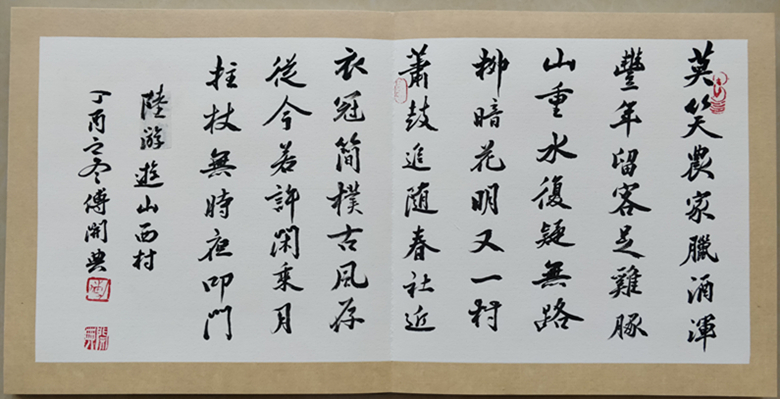 莫笑農家臘酒渾
豐年留客足雞豚
山重水復疑無路
柳暗花明又一村
蕭鼓追随春社近
衣冠簡樸古風存
從今若許閑乘月
拄杖無時夜叩門
陸游遊山西村
丁酉之冬傅開典